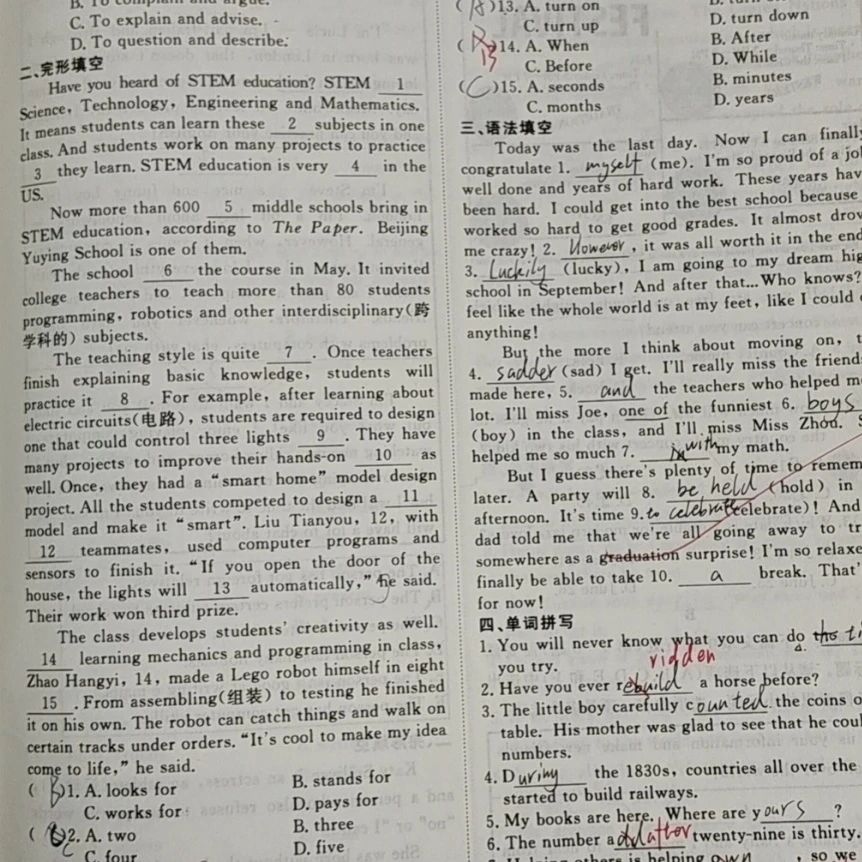 C. To explain and advise.
D. To question and describe.
二、完形填空
Have you heard of STEM education? STEM 1
Science, Technology, Engineering and Mathematics.
It means students can learn these 2 subjects in one
class. And students work on many projects to practice
3 they learn. STEM education is very 4 in the
US.
Now more than 600 5 middle schools bring in
STEM education, according to The Paper. Beijing
Yuying School is one of them.
The school 6 the course in May. It invited
college teachers to teach more than 80 students
programming, robotics and other interdisciplinary(跨
学科的) subjects.
The teaching style is quite 7 . Once teachers
finish explaining basic knowledge, students will
practice it 8 . For example, after learning about
electric circuits(电路), students are required to design
one that could control three lights 9 . They have
many projects to improve their hands-on 10 as
well. Once, they had a "smart home" model design
project. All the students competed to design a 11
model and make it "smart". Liu Tianyou, 12, with
12 teammates, used computer programs and
sensors to finish it. "If you open the door of the
house, the lights will 13 automatically," he said.
Their work won third prize.
The class develops students' creativity as well.
14 learning mechanics and programming in class,
Zhao Hangyi, 14, made a Lego robot himself in eight
15 . From assembling(组装) to testing he finished
it on his own. The robot can catch things and walk on
certain tracks under orders. "It's cool to make my idea
come to life," he said.
( B )1. A. looks for B. stands for
C. works for D. pays for
( )2. A. two B. three
C. four D. five
( A )13. A. turn on
C. turn up D. turn down
( )14. A. When B. After
C. Before D. While
( C )15. A. seconds B. minutes
C. months D. years
三、语法填空
Today was the last day. Now I can finally
congratulate 1. myself (me). I'm so proud of a
well done and years of hard work. These years
been hard. I could get into the best school because
worked so hard to get good grades. It almost
me crazy! 2. However , it was all worth it in the end
3. Luckily (lucky), I am going to my dream
school in September! And after that...Who knows?
feel like the whole world is at my feet, like I could
anything!
But the more I think about moving on,
4. sadder (sad) I get. I'll really miss the
made here, 5. and the teachers who helped
lot. I'll miss Joe, one of the funniest 6. boys
(boy) in the class, and I'll miss Miss Zhou.
helped me so much 7. with my math.
But I guess there's plenty of time to
later. A party will 8. be held (hold) in
afternoon. It's time 9. to celebrate (celebrate)! And
dad told me that we're all going away to
somewhere as a graduation surprise! I'm so
finally be able to take 10. a break. That'
for now!
四、单词拼写
1. You will never know what you can do
you try.
ridden
2. Have you ever rebuild a horse before?
3. The little boy carefully counted the coins
table. His mother was glad to see that he
numbers.
4. During the 1830s, countries all over the
started to build railways.
5. My books are here. Where are yours ?
6. The number after twenty-nine is thirty.